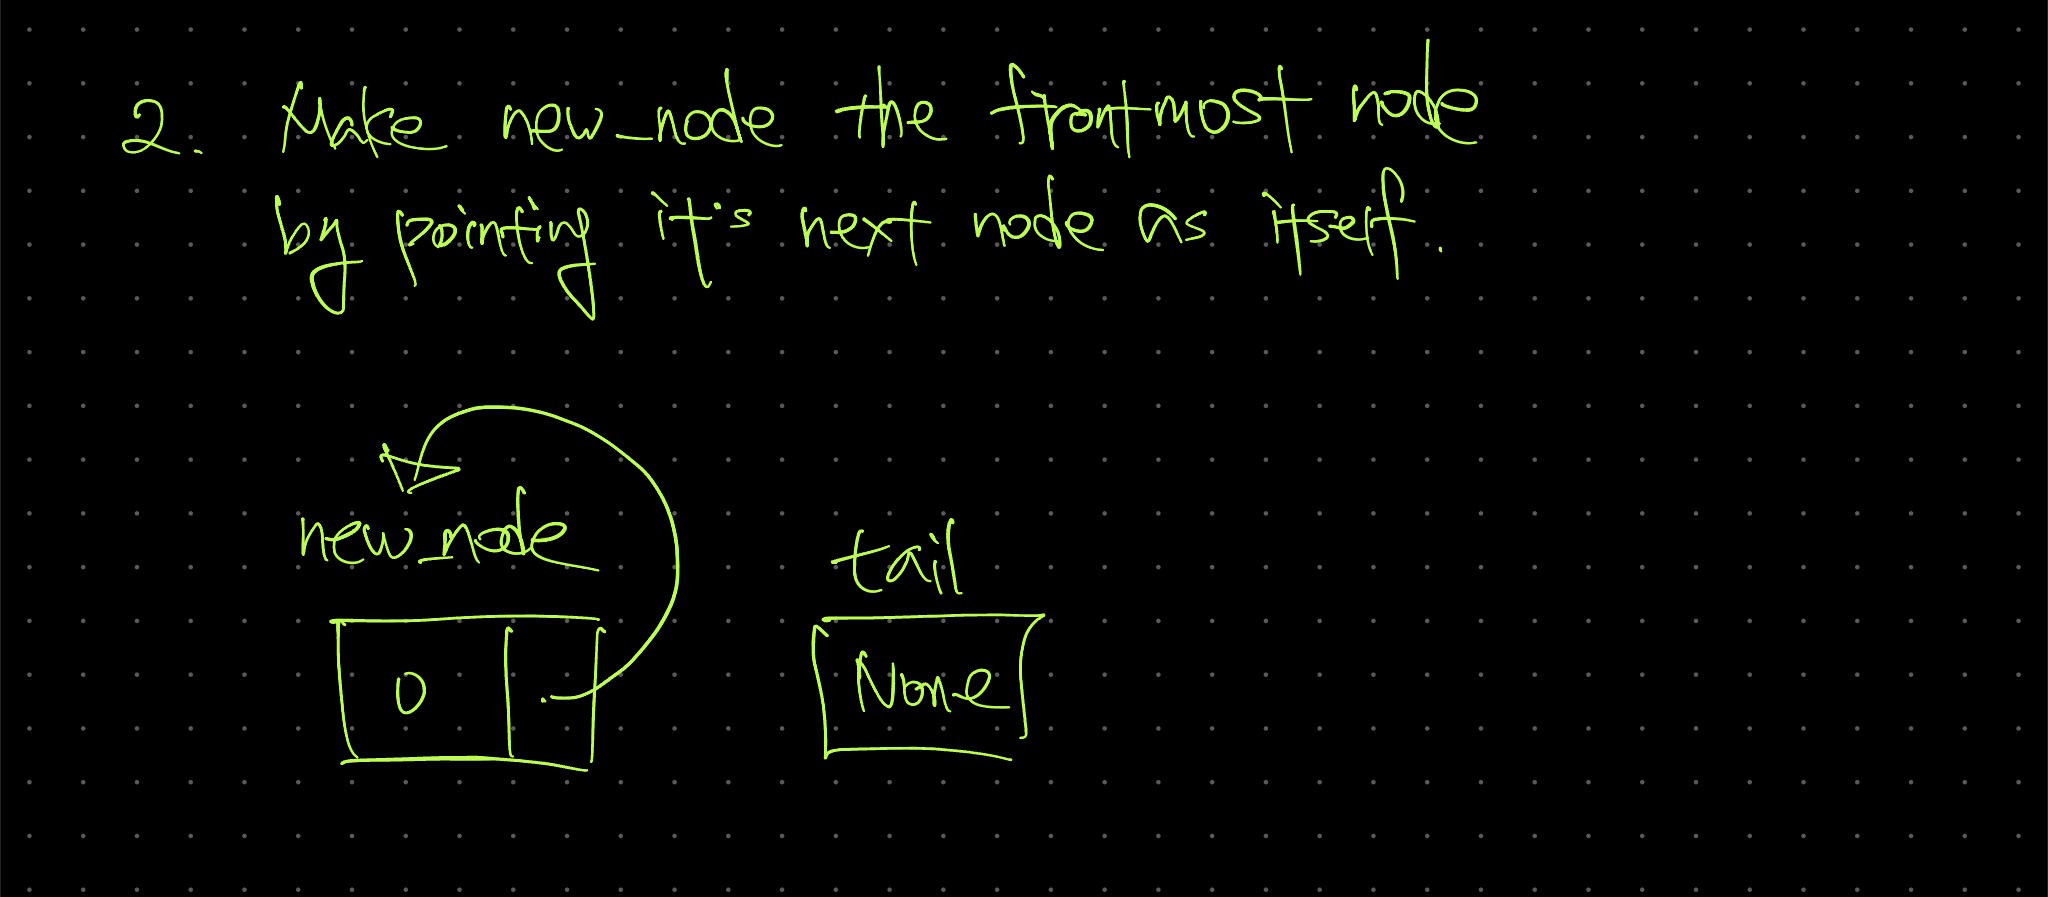 2. Make new_node the frontmost node
by pointing it's next node as itself.
new_node
tail
0
None